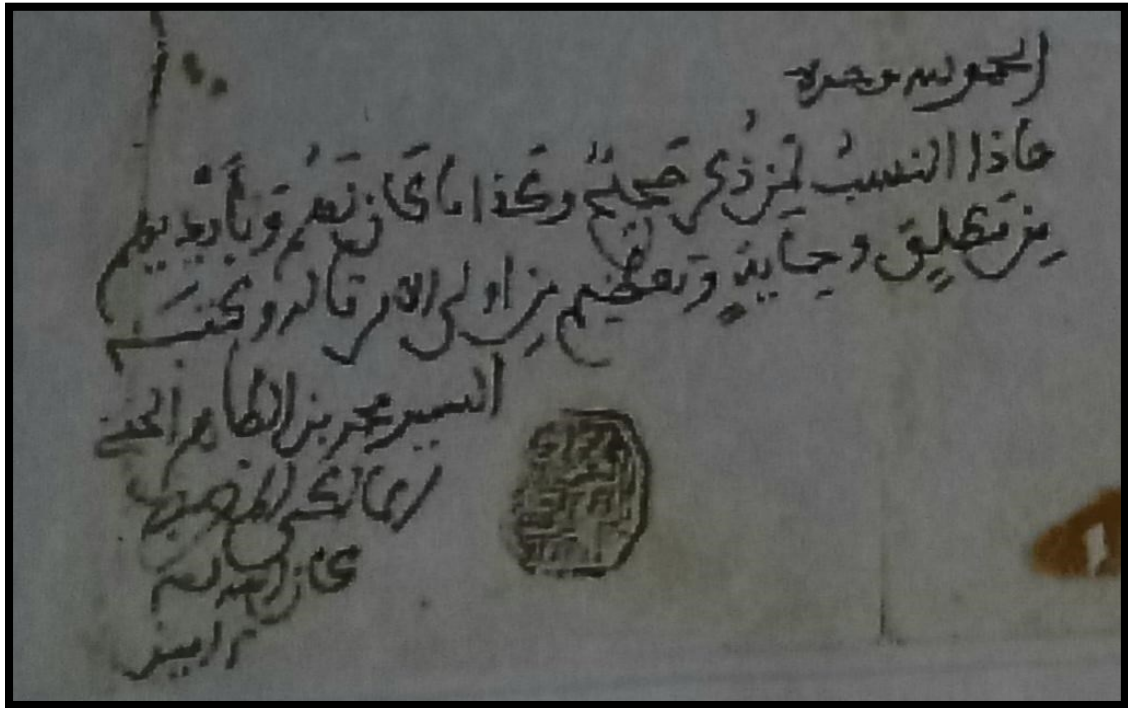 الحمد لله وحده
هاذا النسبُ لمن ذُكر صَحيحٌ وكذا ما كان لهُم وبأيديهم
مِن تصليق وحمَايةٍ وتعظيم مِن اولي الامر قاله وكتبَه
السيد محمد بن الطاهر الحسني
المالكي
كان الله له
امين